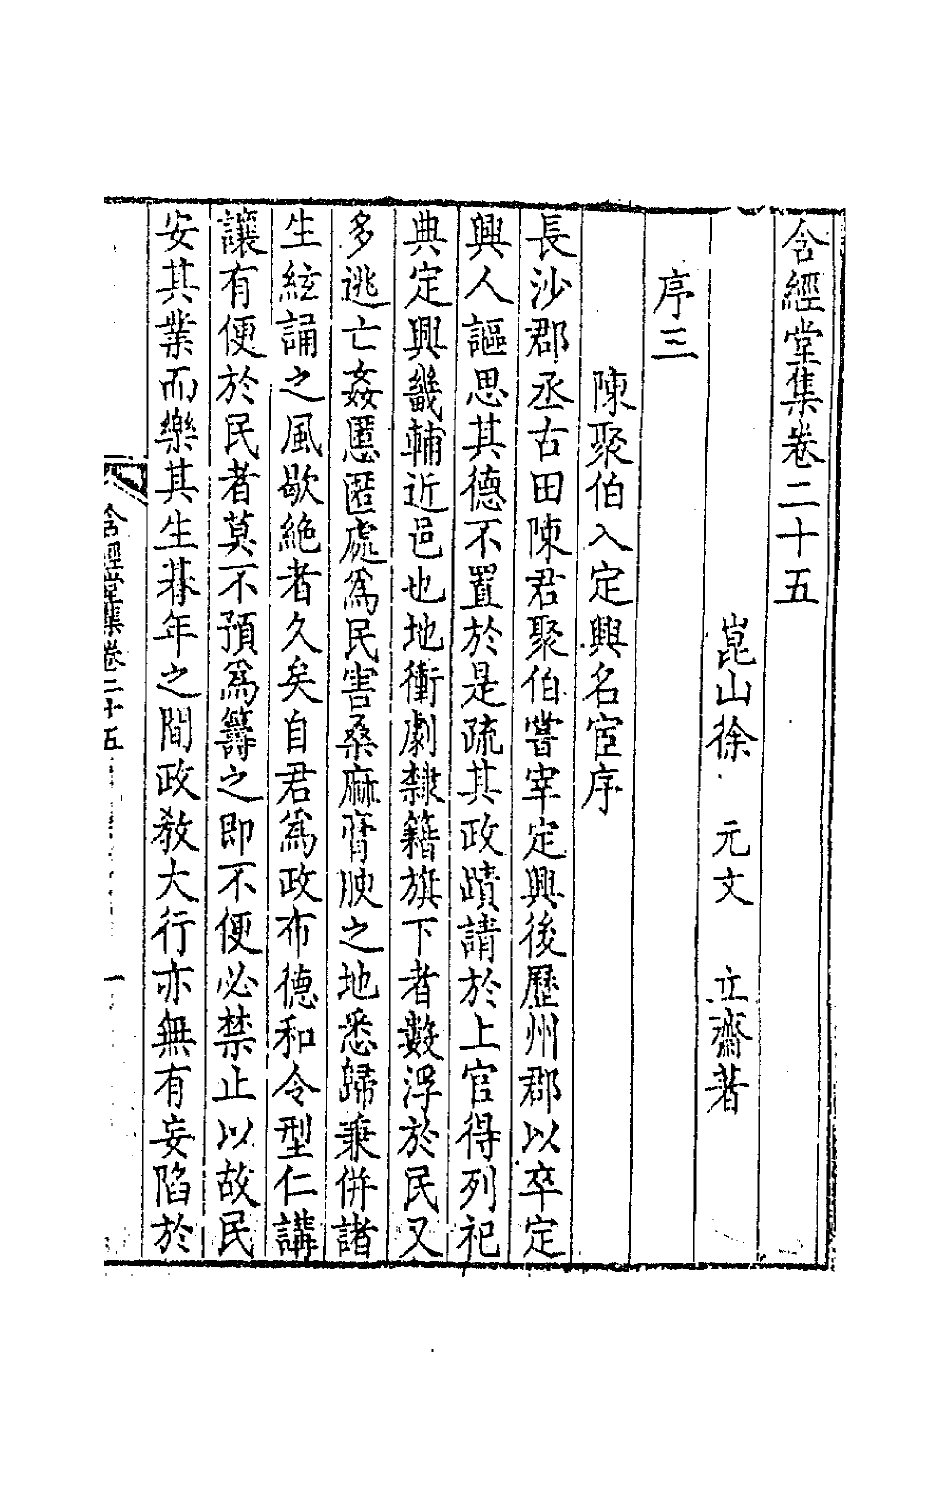 含經堂集卷二十五
崑山徐 元文 立齋著
序三
陳聚伯入定興名宦序
長沙郡丞古田陳君聚伯嘗宰定興後歷州郡以卒定
興人謳思其德不置於是疏其政蹟請於上官得列祀
典定興畿輔近邑也地衝劇隸籍旗下者數浮於民又
多逃亡姦慝匿處爲民害桑麻膏腴之地悉歸兼併諸
生絃誦之風歇絶者久矣自君爲政布德和令型仁講
讓有便於民者莫不預爲籌之即不便必禁止以故民
安其業而樂其生朞年之間政教大行亦無有妄陷於
含經堂集卷二十五
一